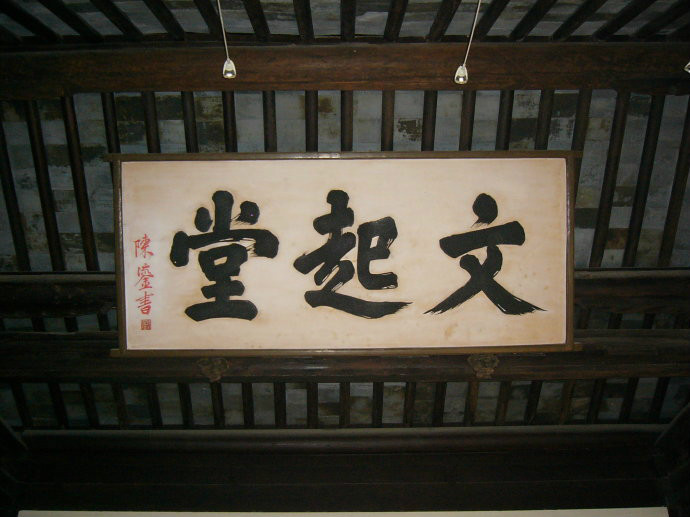 文起堂
陳鎏書